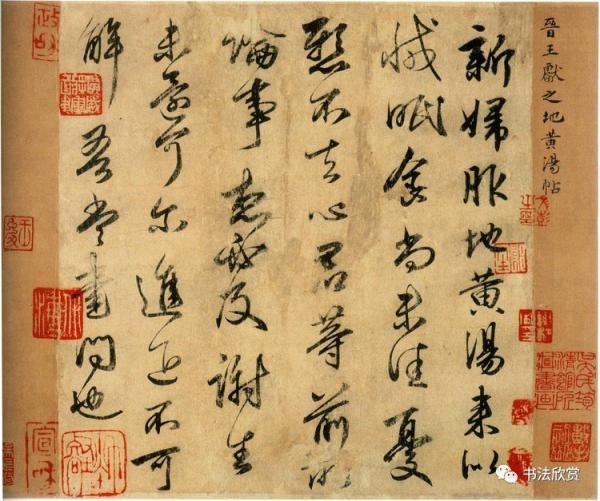 晉王獻之地黄湯帖
新婦服地黄湯来似
減眠食尚未佳憂
懸不去心君等前所
論事想必及謝生
未還可尔進退不可
解吾當書問也
政和
宣和
书法欣赏